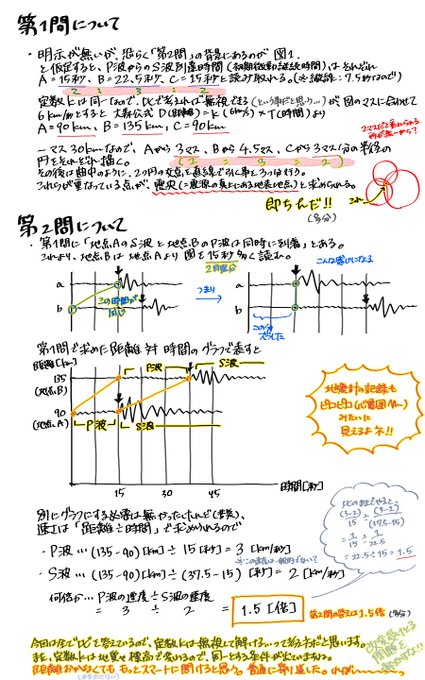 第1問について
・明示が無いが、恐らく「第2問」の背景にあるのが 図1.
と仮定すると、P波からのS波到達時間(初期微動継続時間)はそれぞれ
A=15秒、B=22.5秒、C=15秒と読み取れる。(※縦線:7.5秒なので)
2 : 3 : 2
定数kは同一なので、比で考えれば無視できる(という事だと思う…)が図のマスに合わせて
6km/秒とすると 大森公式 D(距離)=k(6km/s)×T(時間)より
A=90km、B=135km、C=90km
一マス30kmなので、Aから3マス、Bから4.5マス、Cから3マス分の半径の
(2 : 3 : 2)
円をそれぞれ描く。
その後は曲中に、2つの円の交点を直線で引く事を3つ分行う。
これらが重なっている点が、震央(=震源の真上にある地表地点)と求められる。
これ
即ちんだ!!
(多分)
第2問について
・第1問に「地点AのS波と地点BのP波は同時に到着」とある。
これより、地点Bは地点Aより図を15秒多く読む。
2目盛分
a
b
この時間が同じ
つまり
こんな感じになる
a
b
この分ずらした
第1問で求めた距離 対 時間のグラフで表すと
距離[km]
135
(地点B)
90
(地点A)
P波
S波
P波
S波
15
30
45
時間[秒]
地震計の記録も
ピコピコ(心電図ん〜)
みたいに
見えるよネ!!
別にグラフにする必要は無かったけれど(笑)、
速さは「距離÷時間」で求められるので
・P波…(135-90)[km]÷15[秒]=3[km/秒]
・S波…(135-90)[km]÷(37.5-15)[秒]=2[km/秒]
何倍か…P波の速度÷S波の速度
= 3 ÷ 2 = 1.5[倍]
第2問の答えは1.5倍(多分)
比のままでやると、
(3-2)/15 ÷ (3-2)/(37.5-15)
=1/15÷1/22.5
=22.5÷15=1.5
今回は全て"比"を答えているので、定数kは無視して解ける、って考え方だと思います。
また、定数kは地質や標高で変わるので、同一とする条件が出ていますね。